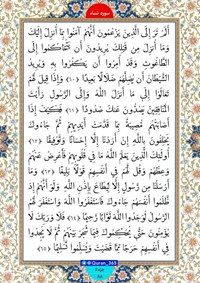 سوره نساء
أَلَمْ تَرَ إِلَى الَّذِينَ يَزْعُمُونَ أَنَّهُمْ آمَنُوا بِمَا أُنْزِلَ إِلَيْكَ
وَمَا أُنْزِلَ مِنْ قَبْلِكَ يُرِيدُونَ أَنْ يَتَحَاكَمُوا إِلَى
الطَّاغُوتِ وَقَدْ أُمِرُوا أَنْ يَكْفُرُوا بِهِ وَيُرِيدُ
الشَّيْطَانُ أَنْ يُضِلَّهُمْ ضَلَالًا بَعِيدًا ﴿٦٠﴾ وَإِذَا قِيلَ لَهُمْ
تَعَالَوْا إِلَى مَا أَنْزَلَ اللَّهُ وَإِلَى الرَّسُولِ رَأَيْتَ
الْمُنَافِقِينَ يَصُدُّونَ عَنْكَ صُدُودًا ﴿٦١﴾ فَكَيْفَ إِذَا
أَصَابَتْهُمْ مُصِيبَةٌ بِمَا قَدَّمَتْ أَيْدِيهِمْ ثُمَّ جَاءُوكَ
يَحْلِفُونَ بِاللَّهِ إِنْ أَرَدْنَا إِلَّا إِحْسَانًا وَتَوْفِيقًا ﴿٦٢﴾
أُولَئِكَ الَّذِينَ يَعْلَمُ اللَّهُ مَا فِي قُلُوبِهِمْ فَأَعْرِضْ عَنْهُمْ
وَعِظْهُمْ وَقُلْ لَهُمْ فِي أَنْفُسِهِمْ قَوْلًا بَلِيغًا ﴿٦٣﴾ وَمَا
أَرْسَلْنَا مِنْ رَسُولٍ إِلَّا لِيُطَاعَ بِإِذْنِ اللَّهِ وَلَوْ أَنَّهُمْ إِذْ
ظَلَمُوا أَنْفُسَهُمْ جَاءُوكَ فَاسْتَغْفَرُوا اللَّهَ وَاسْتَغْفَرَ لَهُمُ
الرَّسُولُ لَوَجَدُوا اللَّهَ تَوَّابًا رَحِيمًا ﴿٦٤﴾ فَلَا وَرَبِّكَ لَا
يُؤْمِنُونَ حَتَّى يُحَكِّمُوكَ فِيمَا شَجَرَ بَيْنَهُمْ ثُمَّ لَا يَجِدُوا
فِي أَنْفُسِهِمْ حَرَجًا مِمَّا قَضَيْتَ وَيُسَلِّمُوا تَسْلِيمًا ﴿٦٥﴾
@Quran_365
٨٨